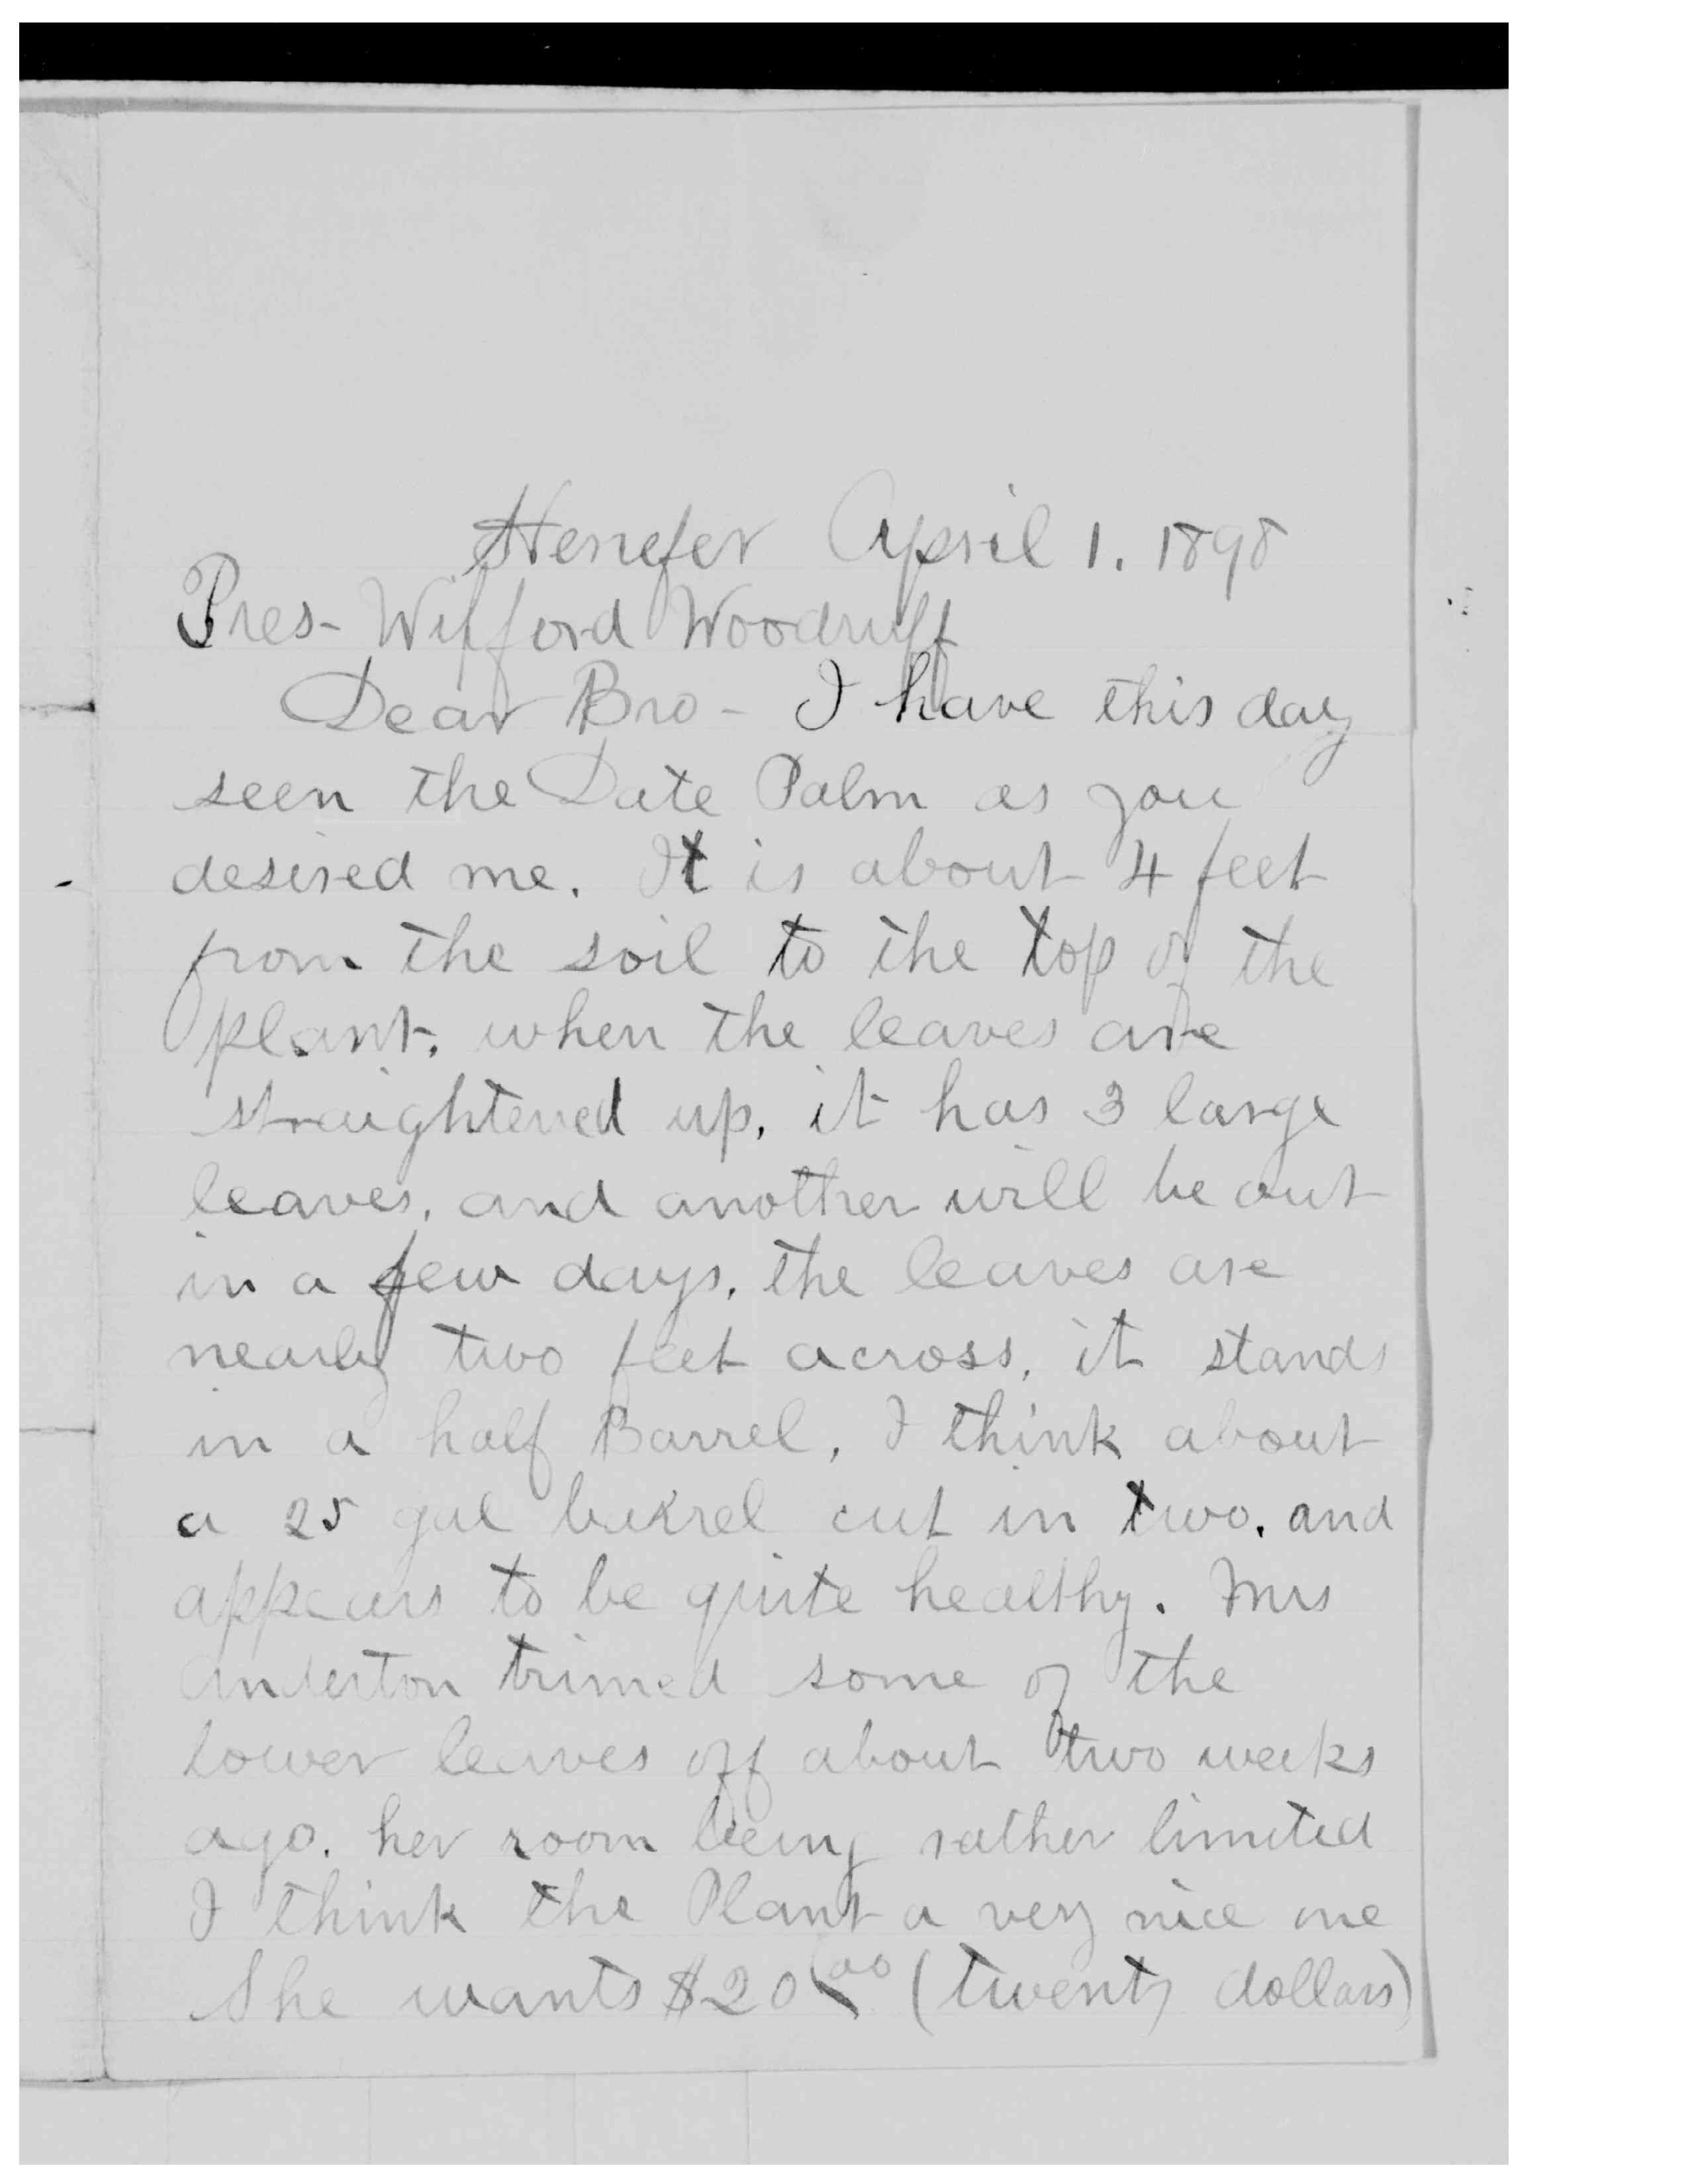 Henefer April 1. 1898
Pres- Wilford Woodruff
Dear Bro- I have this day
seen the Date Palm as you
desired me. It is about 4 feet
from the soil to the top of the
plant. when the leaves are
straightened up, it has 3 large
leaves, and another will be out
in a few days, the leaves are
nearly two feet across, it stands
in a half Barrel, I think about
a 25 gal barrel cut in two. and
appears to be quite healthy. Mrs
Anderton trimed some of the
lower leaves off about two weeks
ago. her room being rather limited
I think the Plant a very nice one
She wants $20.00 (twenty dollars)